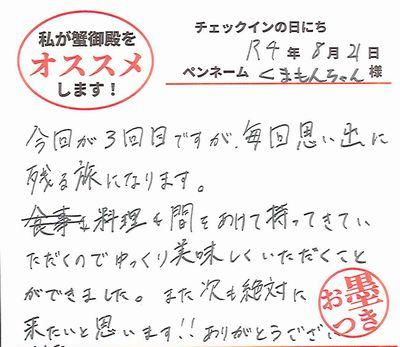 私が蟹御殿を
オススメ
します！
チェックインの日にち
R4年8月21日
ペンネーム くまもんちゃん 様
今回が3回目ですが、毎回思い出に
残る旅になります。
料理も間をあけて持ってきてい
ただくのでゆっくり美味しくいただくこと
ができました。また次も絶対に
来たいと思います!!ありがとうござい
お墨つき